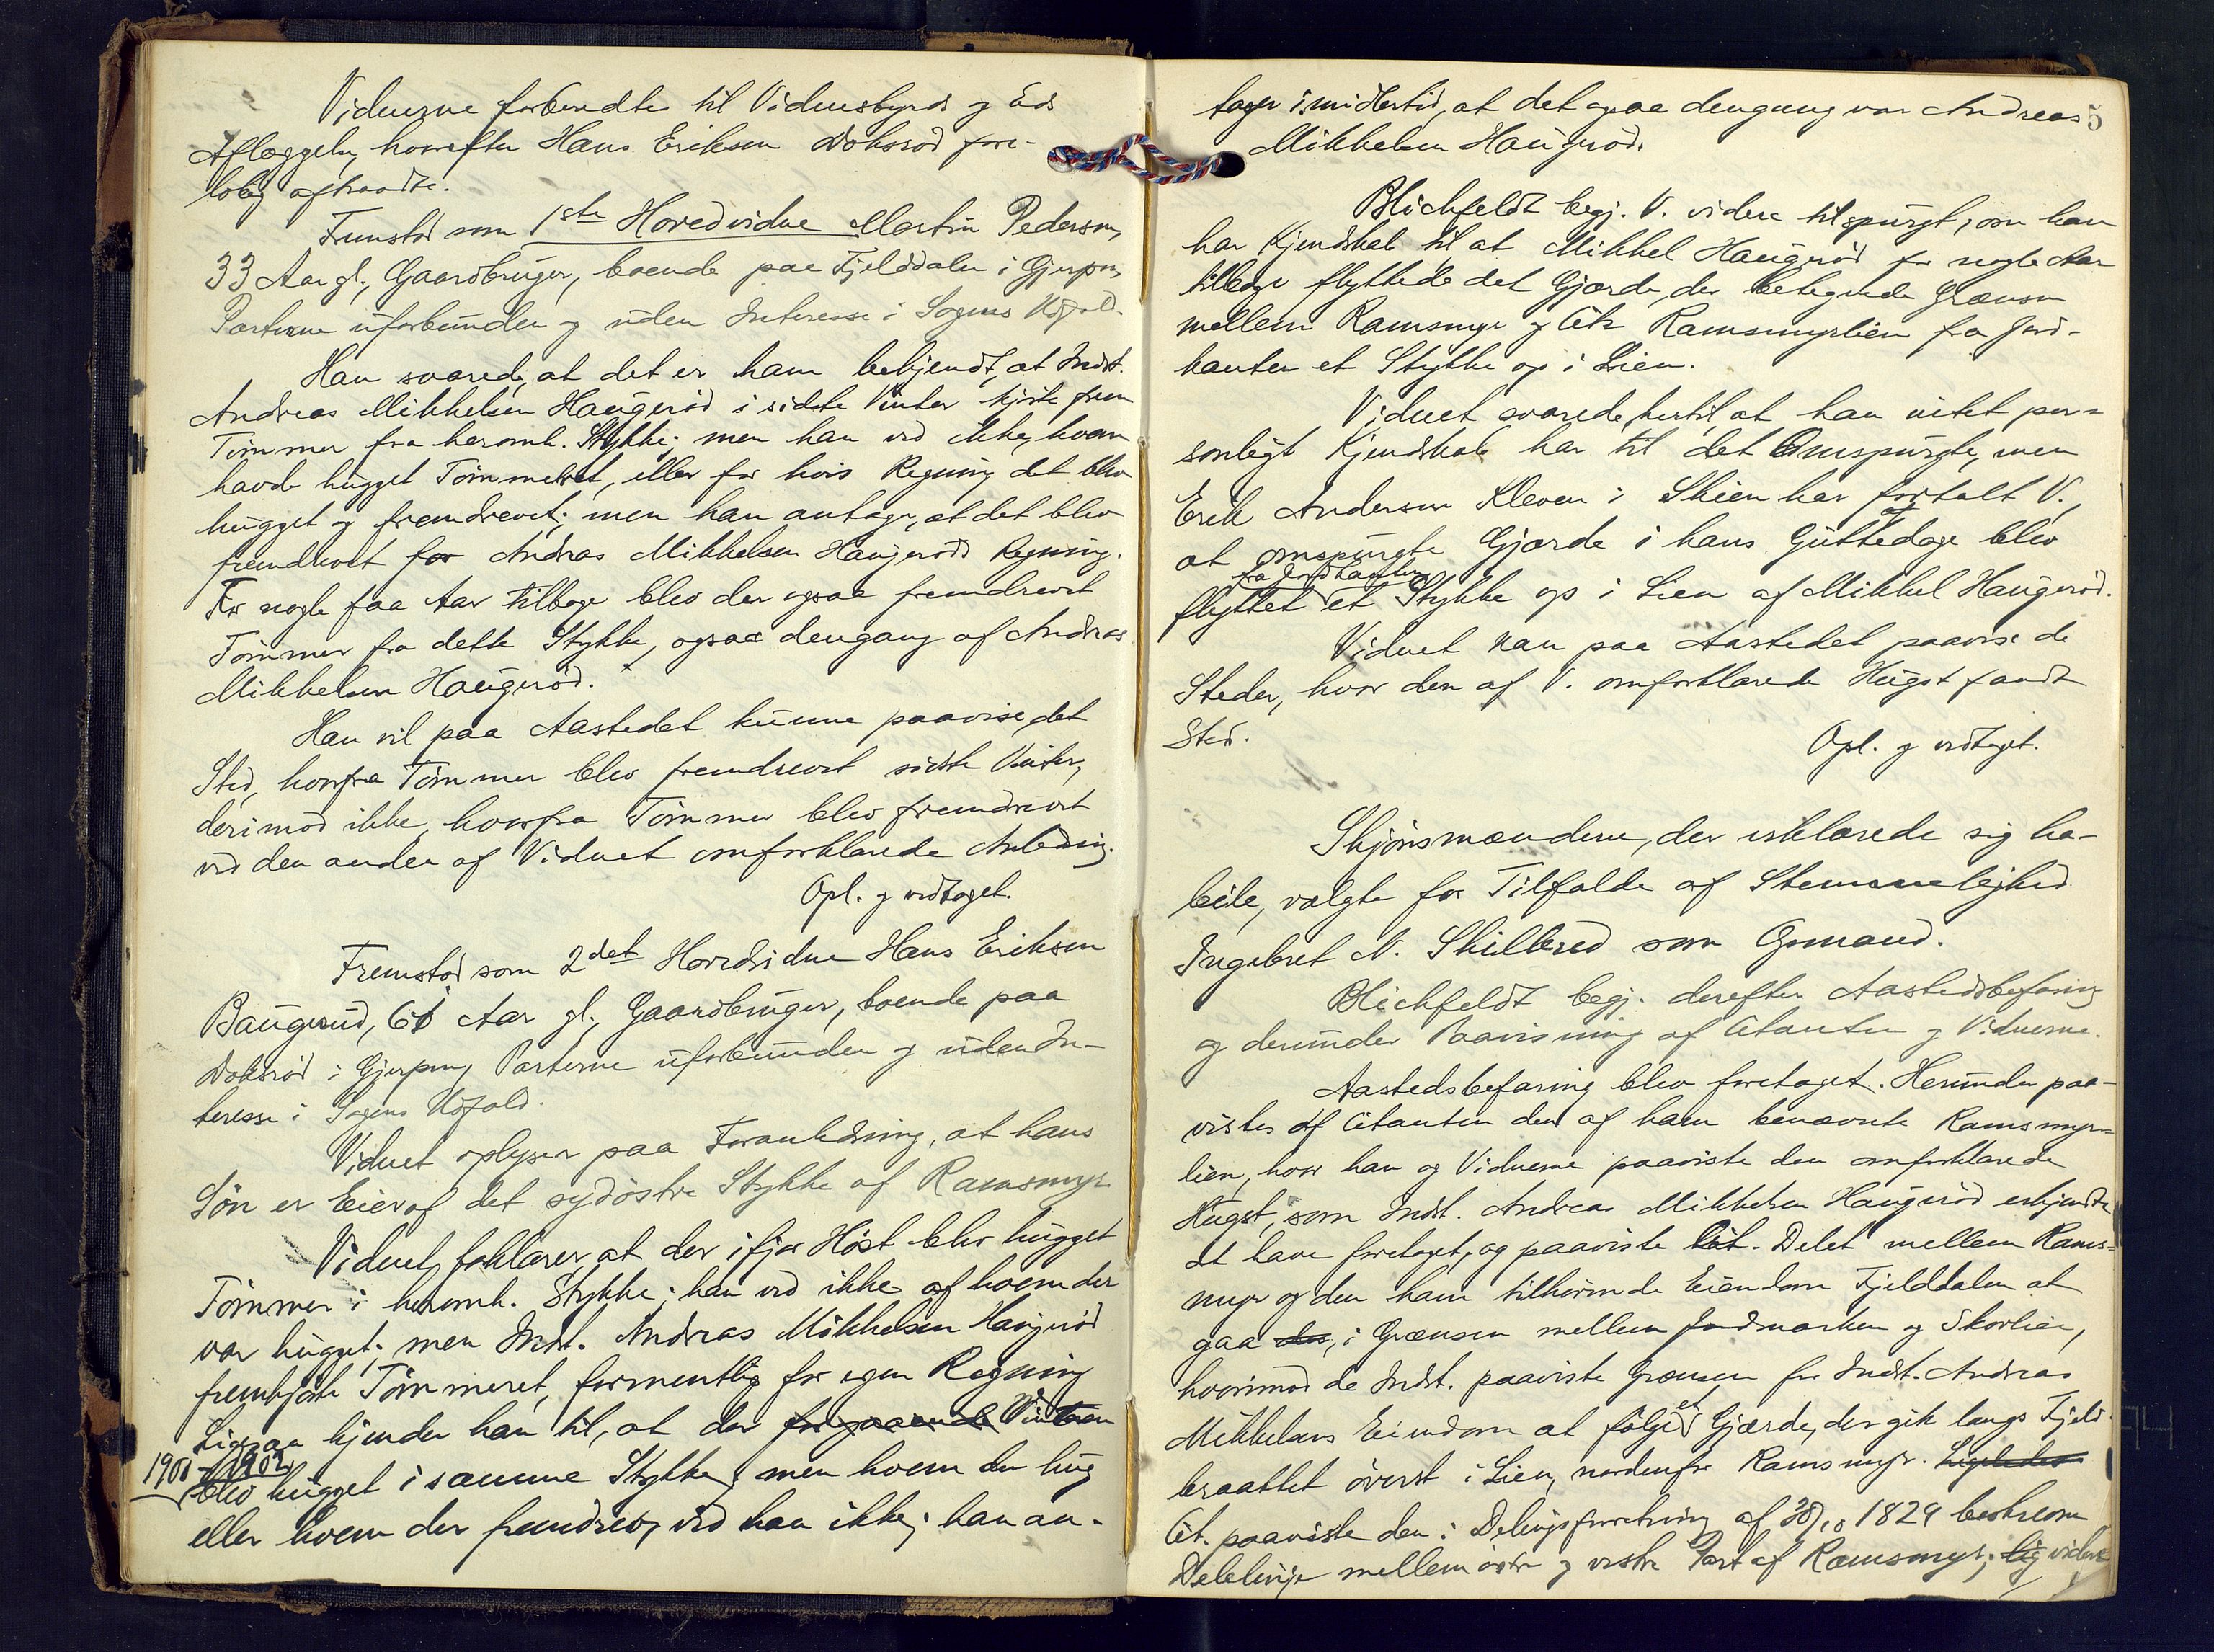 Vidnerne forberedtes til Vidnesbyrds og Eds
Aflæggelse, hvorefter Hans Eriksen Doksrød fore-
løbig aftraadte.
Fremstod som 1ste Hovedvidne Martin Pedersen,
33 Aar gl., Gaardbruger, boende paa Fjelddalen i Gjerpen,
Parterne uforbunden og uden Interesse i Sagens Udfald.
Han svarede, at det er ham bekjendt, at Indst.
Andreas Mikkelsen Haugerød i sidste Vinter kjørte frem
Tømmer fra heromh. Stykke; men han ved ikke, hvem
havde hugget Tømmeret, eller for hvis Regning det blev
hugget og fremdrevet; men han antager, at det blev
fremdrevet for Andreas Mikkelsen Haugerøds Regning.
For nogle faa Aar tilbage blev der ogsaa fremdrevet
Tømmer fra dette Stykke, ogsaa dengang af Andreas
Mikkelsen Haugerød.
Han vil paa Aastedet kunne paavise det
Sted, hvorfra Tømmer blev fremdrevet sidste Vinter,
derimod ikke, hvorfra Tømmer blev fremdrevet
ved den anden af Vidnet omforklarede Anledning.
Opl. og vedtaget.
Fremstod som 2det Hovedvidne Hans Eriksen
Baugerud, 61 Aar gl., Gaardbruger, boende paa
Doksrød i Gjerpen, Parterne uforbunden og uden In-
teresse i Sagens Udfald.
Vidnet oplyser paa Foranledning, at hans
Søn er Eier af det sydøstre Stykke af Ramsmyr.
Vidnet foklarer, at der ifjor Høst blev hugget
Tømmer i heromh. Stykke; han ved ikke af hvem der
var hugget; men Indst. Andreas Mikkelsen Haugerød
fremkjørte Tømmeret, formentlig for egen Regning
Ligesaa kjender han til, at der forgaaende Vinteren
1901-1902
blev hugget i samme Stykke; men hvem der hug
eller hvem der fremdrev, ved han ikke; han an-
5
tager imidlertid, at det ogsaa dengang var Andreas
Mikkelsen Haugerød.
Blichfeldt begj. V. videre tilspurgt, om han
har Kjendskab til, at Mikkel Haugerød for nogle Aar
tilbage flyttede det Gjærde, der betegnede Grænsen
mellem Ramsmyr og Cits Ramsmyrlien fra Jord-
kanten et Stykke op i Lien.
Vidnet svarede hertil, at han intet per-
sonligt Kjendskab har til det Omspurgte, men
Erik Andersen Kleven i Skien har fortalt V.,
at omspurgte Gjærde i hans Guttedage blev
fra Jordkanten
flyttet et Stykke op i Lien af Mikkel Haugerød.
Vidnet kan paa Aastedet paavise de
Steder, hvor den af V. omforklarede Hugst fandt
Sted.
Opl. og vedtaget.
Skjønsmændene, der erklærede sig ha-
bile, valgte for Tilfælde af Stemmelighed
Ingebret N. Skilbred som Opmand.
Blichfeldt begj. derefter Aastedsbefaring
og derunder Paavisning af Citanten og Vidnerne.
Aastedsbefaring blev foretaget. Herunder paa-
vistes af Citanten den af ham benævnte Ramsmyr-
lien, hvor han og Vidnerne paaviste den omforklarede
Hugst, som Indst. Andreas Mikkelsen Haugerød erkjendte
at have foretaget, og paaviste Cit. Delet mellem Rams-
myr og den ham tilhørende Eiendom Fjelddalen at
gaa des, i Grænsen mellem Jordmarken og Skovlien,
hvorimod de Indst. paaviste Grænsen for Indst. Andreas
Mikkelsens Eiendom at følge et Gjærde, der gik langs Fjeld-
braattet øverst i Lien, nordenfor Ramsmyr. Ligeledes
Cit. paaviste den i Delingsforretning af 30/10 1829 beskrevne
Delelinje mellem østre og vestre Part af Ramsmyr; lig videre